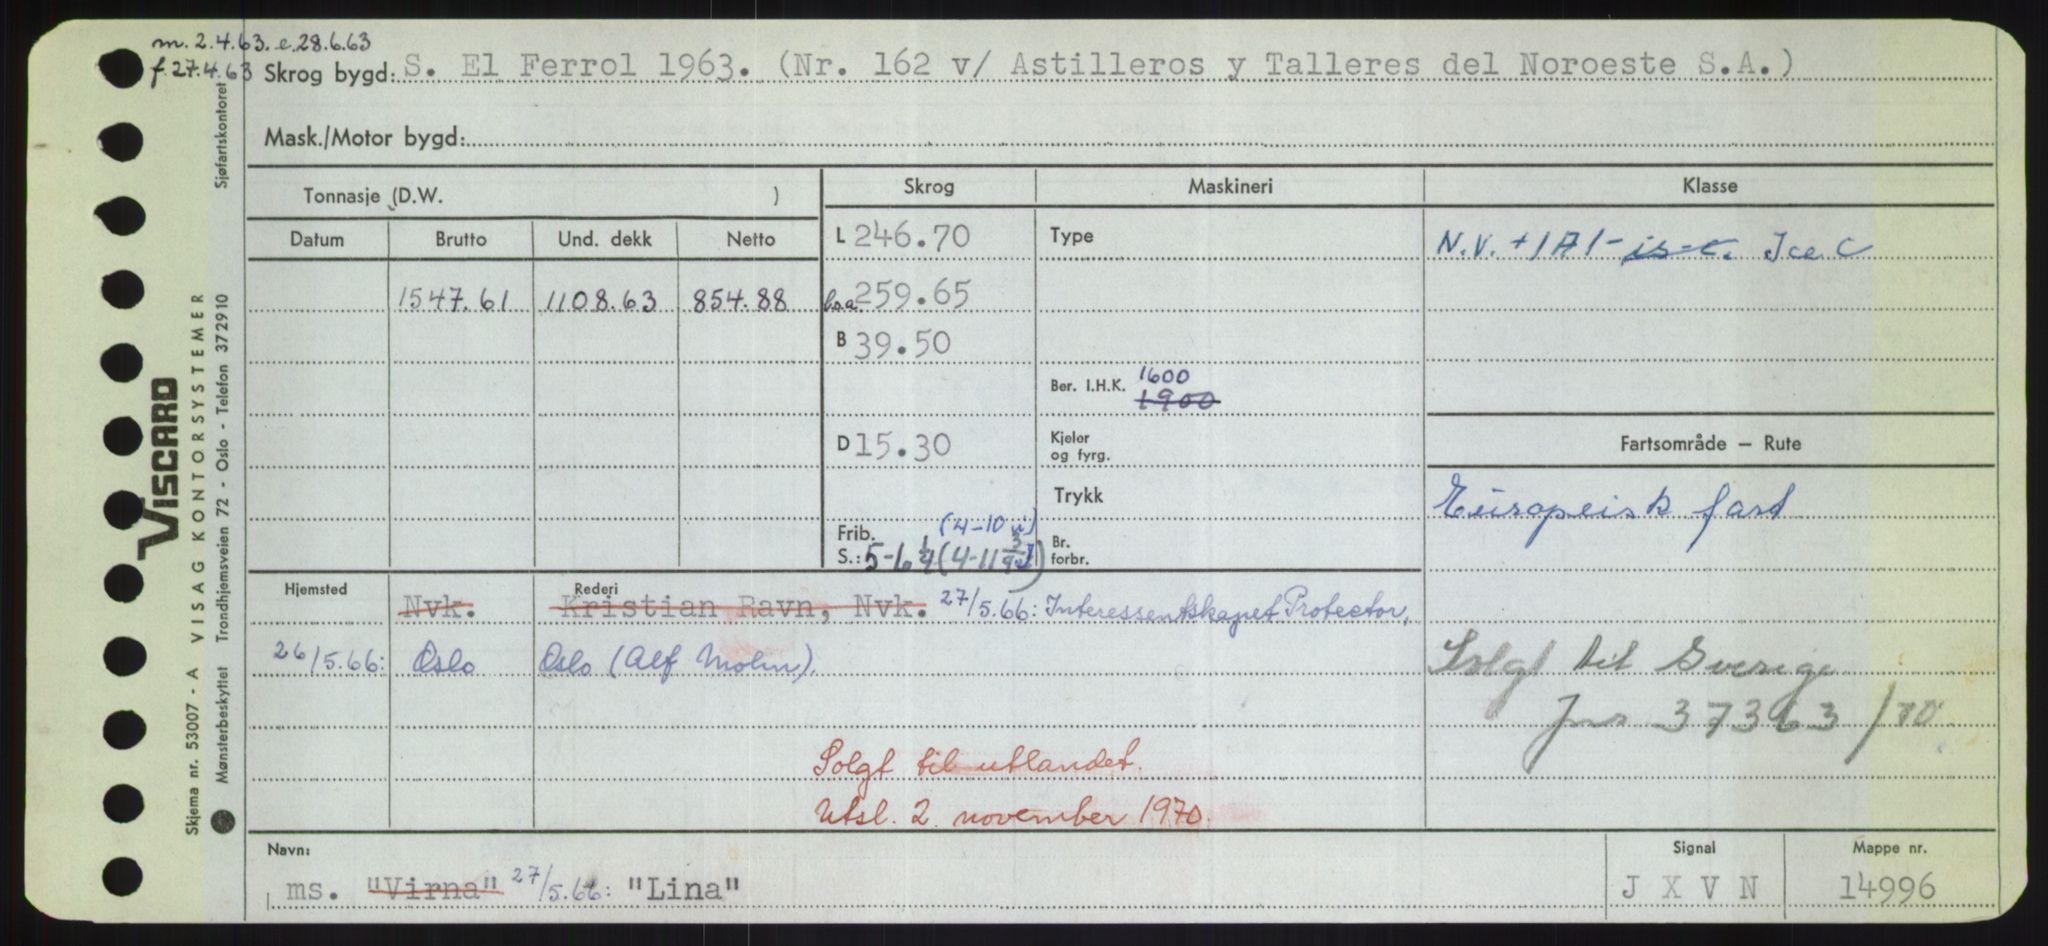 m. 2.4.63. e.28.6.63
f.27.4.63 Skrog bygd: S. El Ferrol 1963. (Nr. 162 v/ Astilleros y Talleres del Noroeste S.A.)
Mask./Motor bygd:
Tonnasje (D.W. )
Skrog Maskineri Klasse
Datum Brutto Und. dekk Netto
L 246.70 Type N.V. +1A1- is-c. Ice C
1547.61 1108.63 854.88 259.65
B 39.50
Ber. I.H.K. 1600
1900
D 15.30 Kjeler og fyrg. Fartsområde – Rute
Trykk Europeisk fart
Frib. (4-10
S.: 5-6 1/4 (4-11 Br. forbr.
Hjemsted Rederi
Nvk. Kristian Ravn, Nvk. 27/5.66: Interessentskapet Protector,
26/5.66: Oslo Oslo (Alf Mohn).
Solgt til Sverige
Jnr 37363/70
Solgt til utlandet.
Utsl. 2. november 1970.
Navn: Signal Mappe nr.
ms. "Virna" 27/5.66: "Lina" J X V N 14996
VISCARD
Skjema nr. 53007 - A VISAG KONTORSYSTEMER
Mønsterbeskyttet Trondhjemsveien 72 - Oslo - Telefon 372910 Sjøfartskontoret